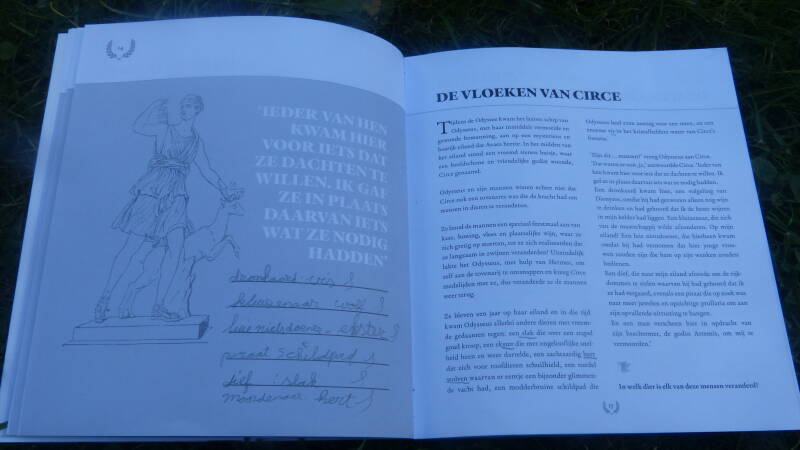 14
'IEDER VAN HEN
KWAM HIER
VOOR IETS DAT
ZE DACHTEN TE
WILLEN. IK GAF
ZE IN PLAATS
DAARVAN IETS
WAT ZE NODIG
HADDEN'
dronkaard vis
kluizenaar wolf
luie nietsdoener ekster
piraat schildpad
dief slak
moordenaar hert
DE VLOEKEN VAN CIRCE
Tijdens de Odyssee kwam het laatste schip van
Odysseus, met haar inmiddels vermoeide en
gewonde bemanning, aan op een mysterieus en
bosrijk eiland dat Aeaea heette. In het midden van
het eiland stond een vreemd stenen huisje, waar
een beeldschone en vriendelijke godin woonde,
Circe genaamd.
Odysseus en zijn mannen wisten echter niet dat
Circe ook een tovenares was die de kracht had om
mensen in dieren te veranderen.
Ze bood de mannen een speciaal feestmaal aan van
kaas, honing, vlees en plaatselijke wijn, waar ze
zich gretig op stortten, tot ze zich realiseerden dat
ze langzaam in zwijnen veranderden! Uiteindelijk
lukte het Odysseus, met hulp van Hermes, om
zelf aan de tovenarij te ontsnappen en kreeg Circe
medelijden met ze, dus veranderde ze de mannen
weer terug.
Ze bleven een jaar op haar eiland en in die tijd
kwam Odysseus allerlei andere dieren met vreemde
gedaanten tegen: een slak die over een stapel
goud kroop, een ekster die met ongelooflijke snelheid
heen en weer dartelde, een zachtaardig hert
dat zich voor roofdieren schuilhield, een roedel
wolven waarvan er eentje een bijzonder glimmende
vacht had, een modderbruine schildpad die
Odysseus heel even aanzag voor een steen, en een
enorme vis in het kristalheldere water van Circe's
fontein.
'Zijn dit... mannen?' vroeg Odysseus aan Circe.
'Dat waren ze ooit, ja,' antwoordde Circe. 'Ieder van
hen kwam hier voor iets dat ze dachten te willen. Ik
gaf ze in plaats daarvan iets wat ze nodig hadden.
Een dronkaard kwam hier, een volgeling van
Dionysus, omdat hij had gezworen alleen nog wijn
te drinken en had gehoord dat ik de beste wijnen
in mijn kelder had liggen. Een kluizenaar, die zich
van de maatschappij wilde afzonderen. Op mijn
eiland! Een luie nietsdoener, die hierheen kwam
omdat hij had vernomen dat hier jonge vrouwen
zouden zijn die hem op zijn wenken zouden
bedienen.
Een dief, die naar mijn eiland afreisde om de rijkdommen
te stelen waarvan hij had gehoord dat ik
ze had vergaard, evenals een piraat die op zoek was
naar meer juwelen en opzichtige prullaria om aan
zijn opvallende uitrusting te hangen.
En een man verscheen hier in opdracht van
zijn beschermer, de godin Artemis, om mij te
vermoorden.'
In welk dier is elk van deze mensen veranderd?
15